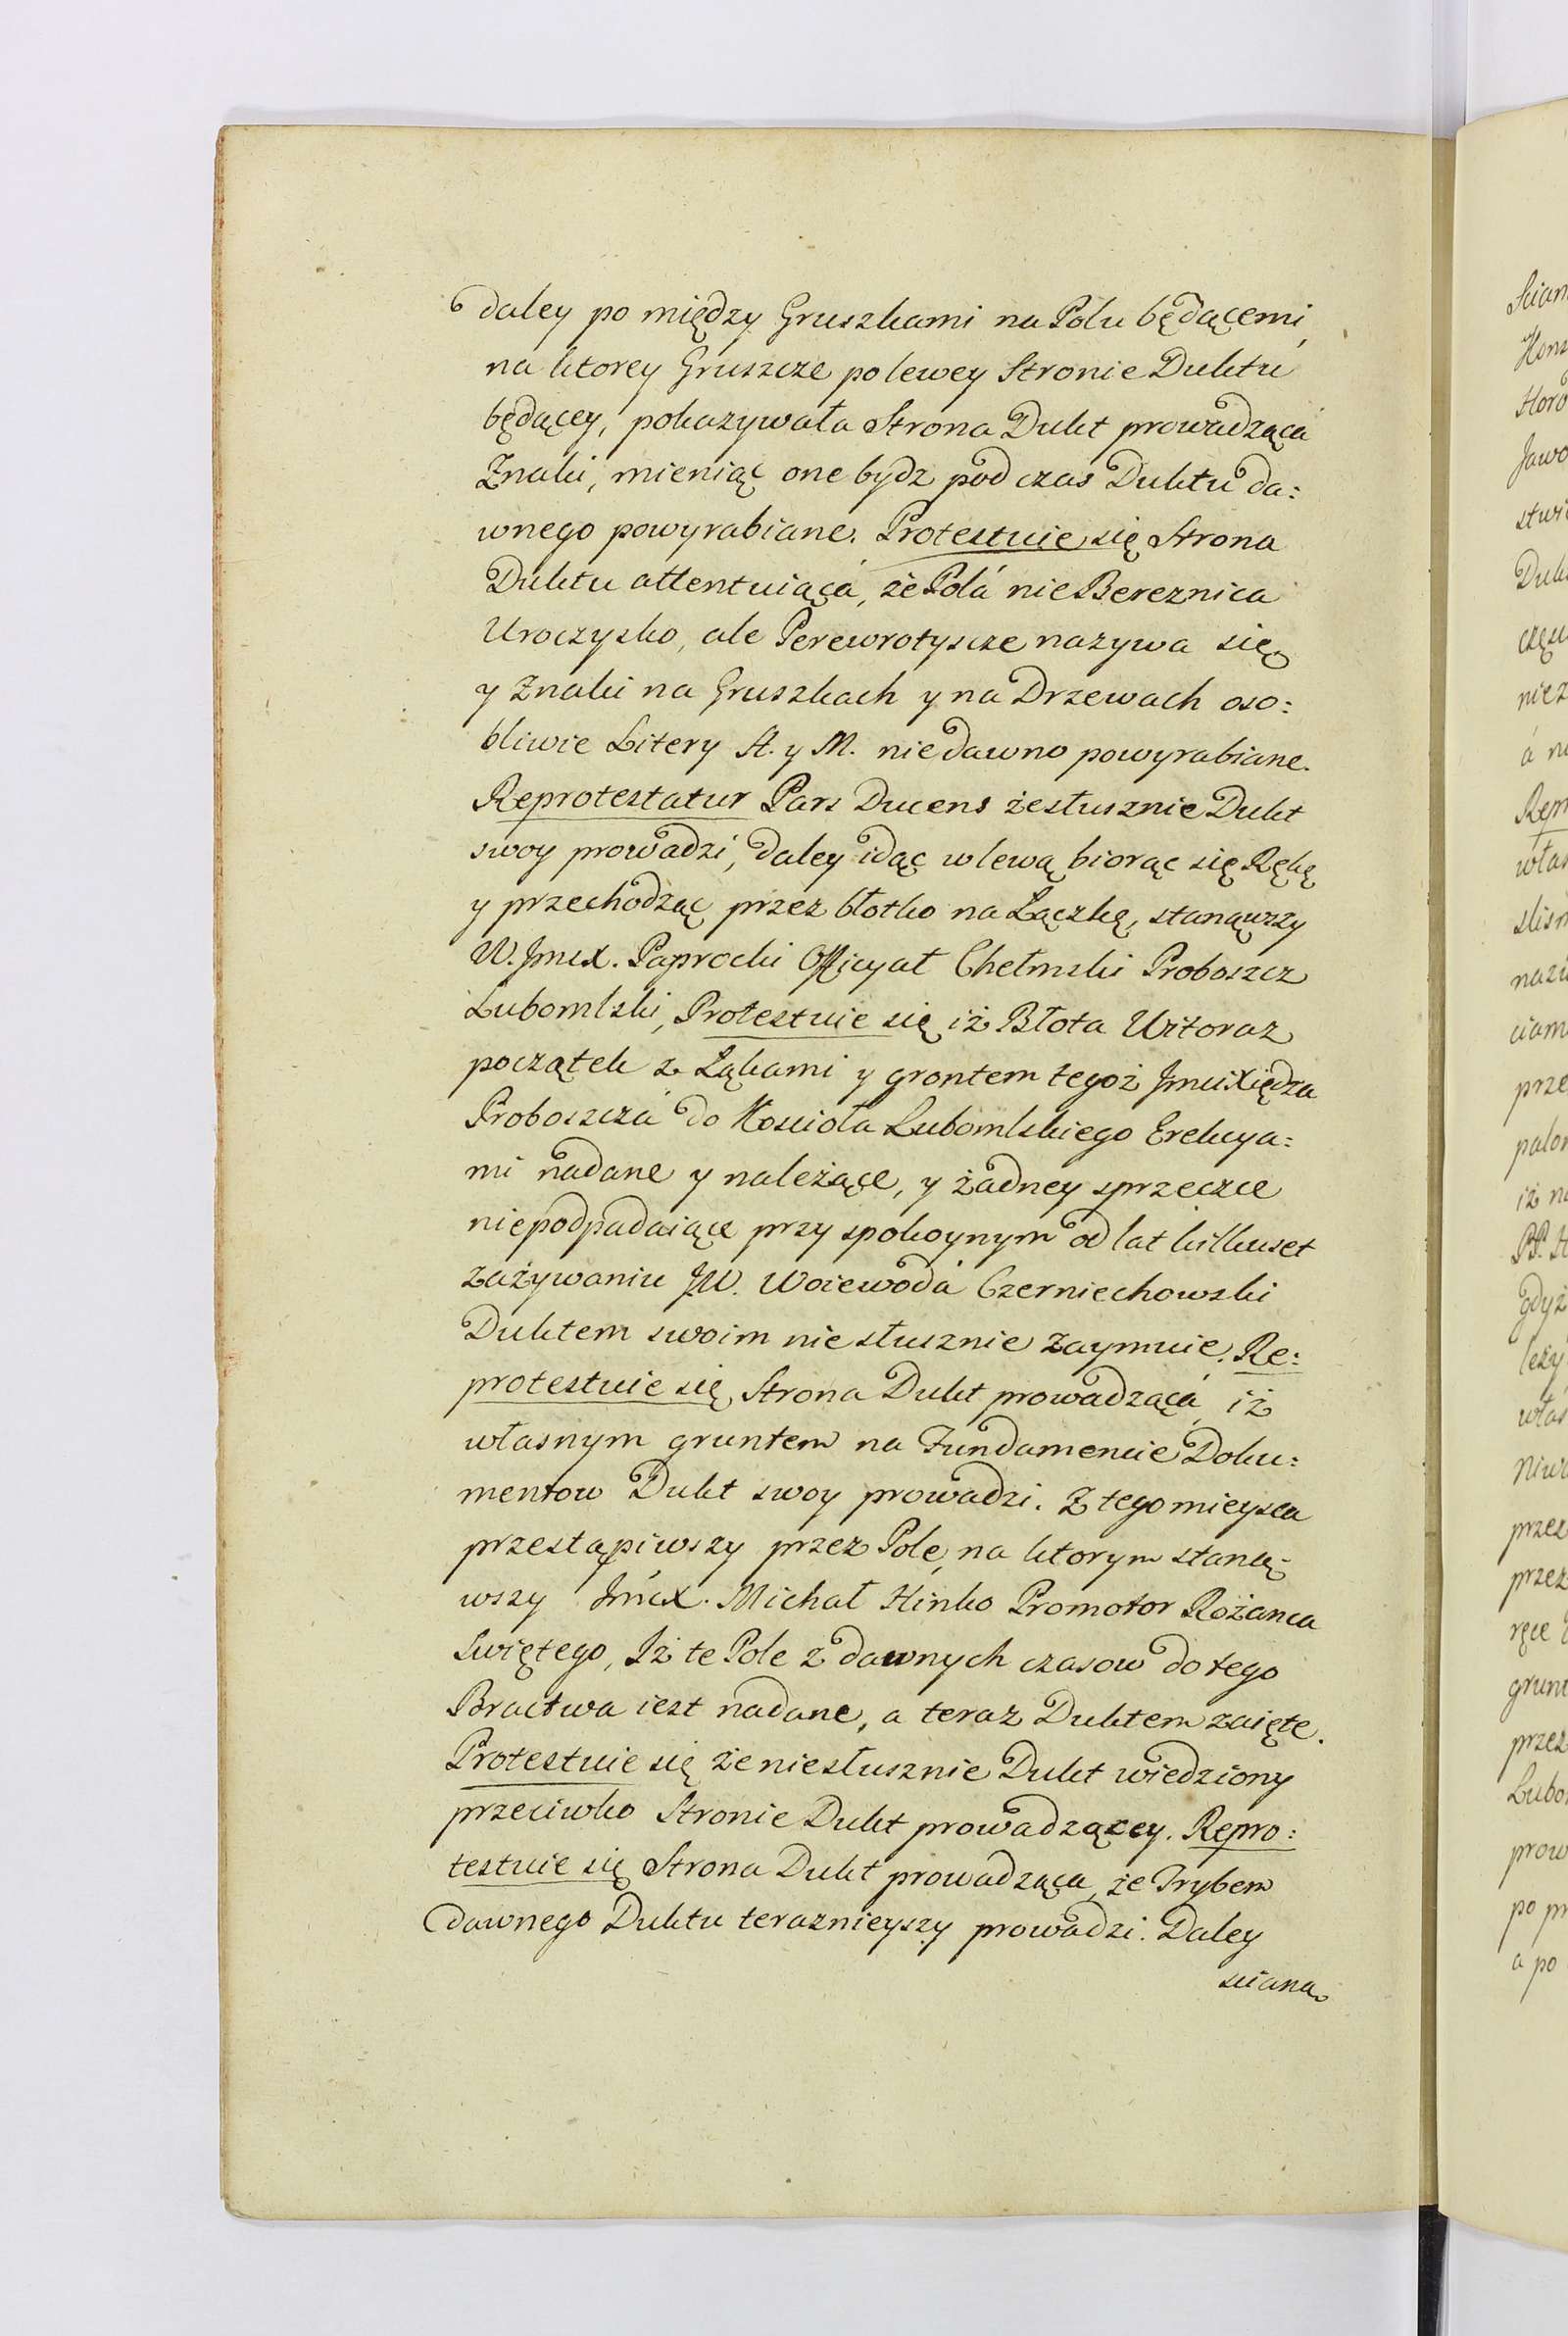 daley po między Gruszkami na Polu będącemi,
na ktorey Gruszcze po lewey Stronie Duktu
będącey, pokazywała Strona Dukt prowadząca
Znaki, mieniąc one bydz pod czas Duktu da:
wnego powyrabiane. Protestuie się Strona
Duktu attentuiąca, że Polá nie Bereznica
Uroczysko, ale Perewrotyscze nazywa się,
y Znaki na Gruszkach y na Drzewach oso:
bliwie Litery A. y M. nie dawno powyrabiane.
Reprotestatur Pars Ducens że słusznie Dukt
swoy prowadzi, daley idąc w lewą biorąc się Rękę
y przechodząc przez błotko na Łączkę, stanąwszy
W. Jmcx. Paprocki Officyał Chełmski Proboszcz
Lubomlski, Protestuie się iż Błota Witoraz
początek z Łąkami y grontem tegoż JmciXiędza
Proboszcza do Koscioła Lubomlskiego Erekcya:
mi nadane y należące, y żadney sprzeczce
nie podpadaiące przy spokoynym od lat kilkuset
zażywaniu JW. Woiewoda Czerniechowski
Duktem swoim nie słusznie zaymuie. Re:
protestuie się Strona Dukt prowadząca, iż
własnym gruntem na Fundamencie Doku:
mentow Dukt swoy prowadzi. Z tego mieysca
przestąpiwszy przez Pole, na ktorym staną:
wszy Jmcx. Michał Hinko Promotor Rożanca
Swiętego, Iż te Pole z dawnych czasow do tego
Bractwa iest nadane, a teraz Duktem zaięte.
Protestuie się że niesłusznie Dukt wiedziony
przeciwko Stronie Dukt prowadzącey. Repro:
testuie się Strona Dukt prowadząca, że Trybem
dawnego Duktu teraznieyszy prowadzi. Daley
sciana